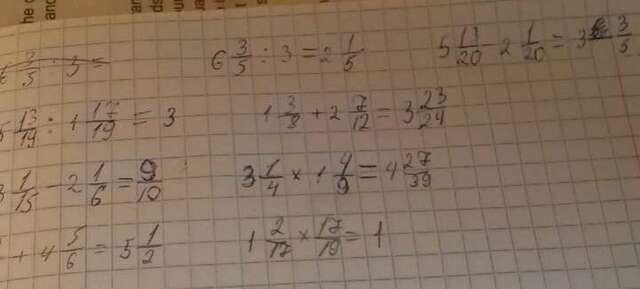 6 3/5 : 3 =
6 3/5 : 3 = 2 1/5
5 11/20 2 1/20 = 3 3/5
5 13/19 : 1 17/19 = 3
1 3/8 + 2 7/12 = 3 23/24
3 1/15 - 2 1/6 = 9/10
3 1/4 × 1 4/9 = 4 27/39
+ 4 5/6 = 5 1/2
1 2/17 × 17/19 = 1